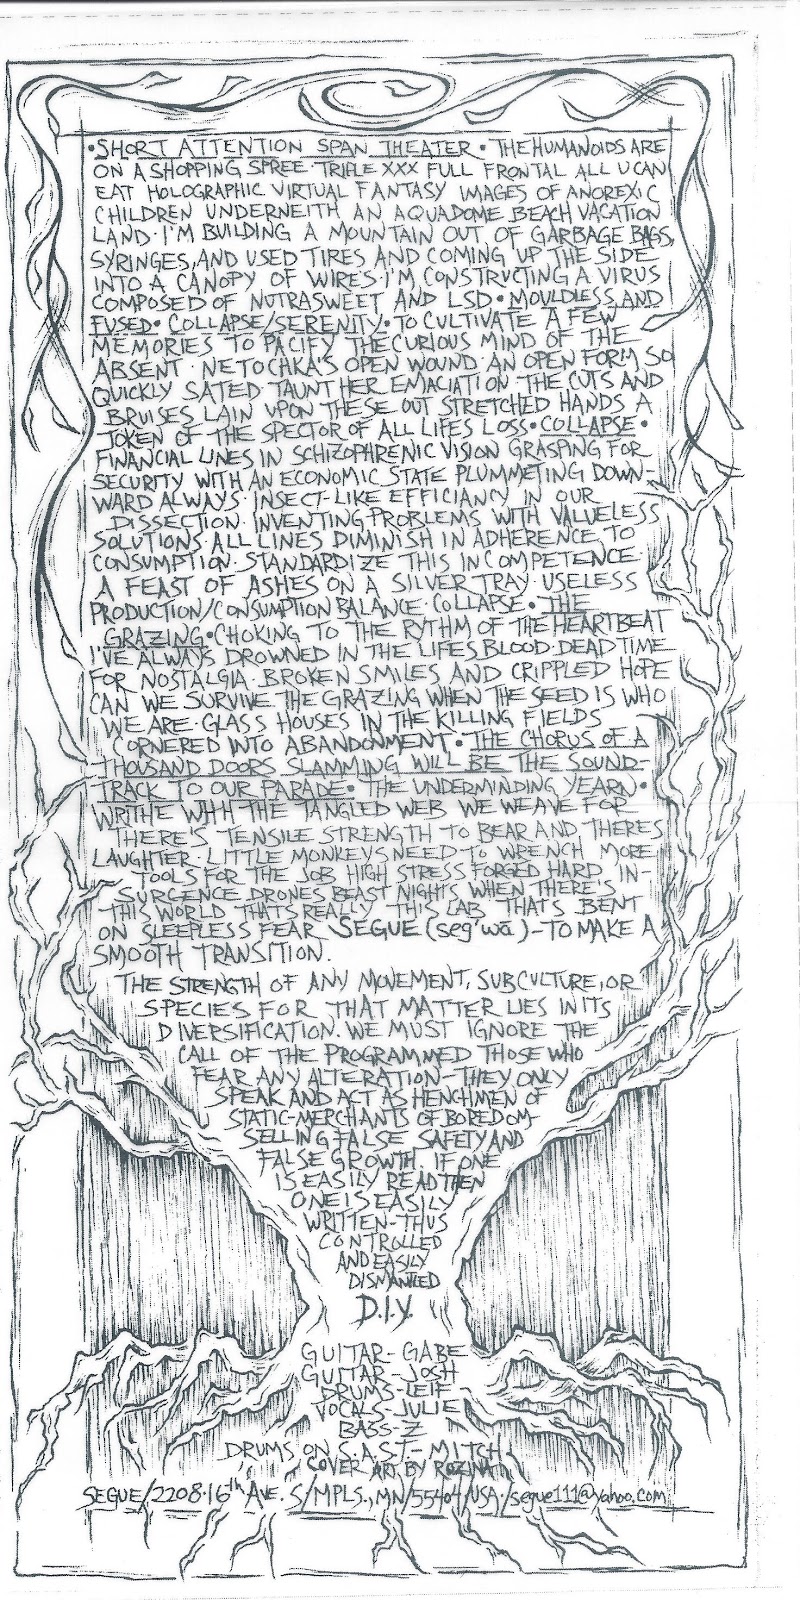 •SHORT ATTENTION SPAN THEATER • THE HUMANOIDS ARE
ON A SHOPPING SPREE · TRIPLE XXX FULL FRONTAL ALL U CAN
EAT HOLOGRAPHIC VIRTUAL FANTASY IMAGES OF ANOREXIC
CHILDREN UNDERNEITH AN AQUADOME BEACH VACATION
LAND · I'M BUILDING A MOUNTAIN OUT OF GARBAGE BAGS,
SYRINGES, AND USED TIRES AND COMING UP THE SIDE
INTO A CANOPY OF WIRES · I'M CONSTRUCTING A VIRUS
COMPOSED OF NUTRASWEET AND LSD • MOULDLESS AND
FUSED • COLLAPSE/SERENITY • TO CULTIVATE A FEW
MEMORIES TO PACIFY THE CURIOUS MIND OF THE
ABSENT · NETOCHKA'S OPEN WOUND · AN OPEN FORM SO
QUICKLY SATED TAUNT HER EMACIATION · THE CUTS AND
BRUISES LAIN UPON THESE OUT STRETCHED HANDS A
TOKEN OF THE SPECTOR OF ALL LIFES LOSS • COLLAPSE •
FINANCIAL LINES IN SCHIZOPHRENIC VISION GRASPING FOR
SECURITY WITH AN ECONOMIC STATE PLUMMETING DOWN-
WARD ALWAYS · INSECT-LIKE EFFICIANCY IN OUR
DISSECTION · INVENTING PROBLEMS WITH VALUELESS
SOLUTIONS · ALL LINES DIMINISH IN ADHERENCE TO
CONSUMPTION · STANDARDIZE THIS INCOMPETENCE ·
A FEAST OF ASHES ON A SILVER TRAY · USELESS
PRODUCTION/CONSUMPTION BALANCE · COLLAPSE • THE
GRAZING • CHOKING TO THE RYTHM OF THE HEARTBEAT
I'VE ALWAYS DROWNED IN THE LIFES BLOOD · DEAD TIME
FOR NOSTALGIA · BROKEN SMILES AND CRIPPLED HOPE
CAN WE SURVIVE THE GRAZING WHEN THE SEED IS WHO
WE ARE · GLASS HOUSES IN THE KILLING FIELDS
CORNERED INTO ABANDONMENT • THE CHORUS OF A
THOUSAND DOORS SLAMMING WILL BE THE SOUND-
TRACK TO OUR PARADE • THE UNDERMINDING YEARN •
WRITHE WITH THE TANGLED WEB WE WEAVE FOR
THERE'S TENSILE STRENGTH TO BEAR AND THERES
LAUGHTER · LITTLE MONKEYS NEED TO WRENCH MORE
TOOLS FOR THE JOB HIGH STRESS FORGED HARD IN-
SURGENCE DRONES BEAST NIGHTS WHEN THERE'S
THIS WORLD THAT'S REALLY THIS LAB THAT'S BENT
ON SLEEPLESS FEAR SEGUE (seg'wā) - TO MAKE A
SMOOTH TRANSITION.
THE STRENGTH OF ANY MOVEMENT, SUBCULTURE, OR
SPECIES FOR THAT MATTER LIES IN ITS
DIVERSIFICATION. WE MUST IGNORE THE
CALL OF THE PROGRAMMED THOSE WHO
FEAR ANY ALTERATION - THEY ONLY
SPEAK AND ACT AS HENCHMEN OF
STATIC-MERCHANTS OF BOREDOM-
SELLING FALSE SAFETY AND
FALSE GROWTH. IF ONE
IS EASILY READ THEN
ONE IS EASILY
WRITTEN - THUS
CONTROLLED
AND EASILY
DISMANTLED
D.I.Y.
GUITAR - GABE
GUITAR - JOSH
DRUMS - LEIF
VOCALS - JULIE
BASS - Z
DRUMS ON S.A.S.T. - MITCH
COVER ART BY ROZINA
SEGUE/2208·16th AVE. S/MPLS., MN/55404/USA·/segue111@yahoo.com